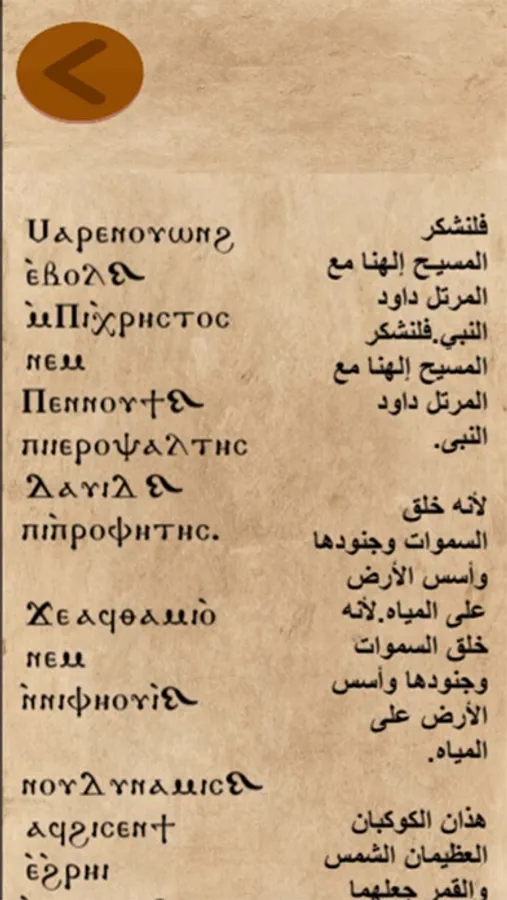 Ⲙⲁⲣⲉⲛⲟⲩⲱⲛϩ
ⲉ̀ⲃⲟⲗ
ⲙ̀Ⲡⲓⲭ̀ⲣⲏⲥⲧⲟⲥ
ⲛⲉⲙ
Ⲡⲉⲛⲛⲟⲩϯ
ⲡⲓⲓⲉⲣⲟⲯⲁⲗⲧⲏⲥ
Ⲇⲁⲩⲓⲇ
ⲡⲓⲡ̀ⲣⲟⲫⲏⲧⲏⲥ.
Ϫⲉ ⲁϥⲑⲁⲙⲓⲟ̀
ⲛⲉⲙ
ⲛ̀ⲛⲓⲫⲏⲟⲩⲓ̀
ⲛⲟⲩⲇⲩⲛⲁⲙⲓⲥ
ⲁϥϩⲓⲥⲉⲛϯ
ⲉ̀ϩⲣⲏⲓ
فلنشكر
المسيح إلهنا مع
المرتل داود
النبي.فلنشكر
المسيح إلهنا مع
المرتل داود
النبى.
لأنه خلق
السموات وجنودها
وأسس الأرض
على المياه.لأنه
خلق السموات
وجنودها وأسس
الأرض على
المياه.
هذان الكوكبان
العظيمان الشمس
والقمر جعلهما